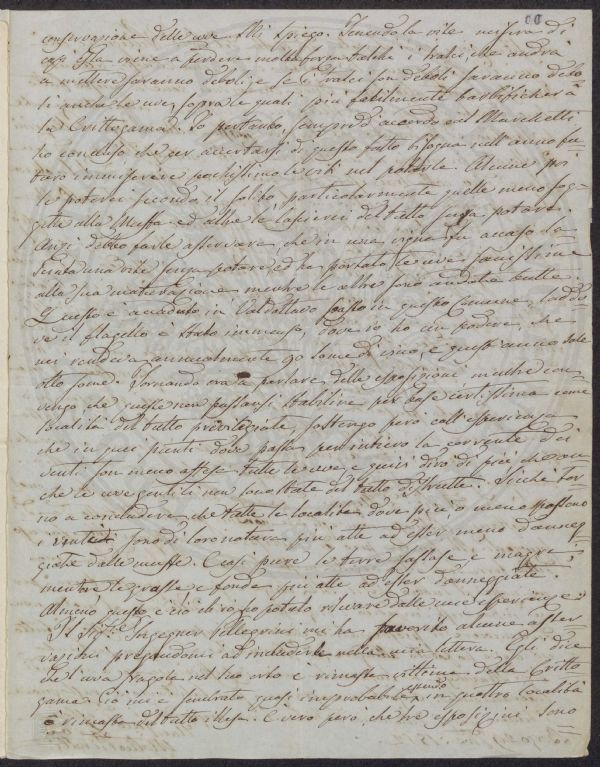 conservazione delle uve. Mi spiego. Tenendo la vite
casi Ella viene a perdere molta forza talchè i tralci che andrà
a mettere saranno deboli, e se i tralci son deboli saranno debo
li anche le uve, sopra le quali più facilmente
la Crittogama. Io pertanto, sempre d'accordo col Marchetti
ho concluso che per accertarsi di questo fatto bisogna nell'anno fu
turo le viti nel potarle. Alcune poi
le poterei secondo il solito particolarmente quelle meno sog
gette alla Muffa ed altre le lascierei del tutto senza potare.
Anzi debbo farle osservare che in una vigna fu a caso la
sciata una vite senza potare ed ha portato le uve sanissime
alla sua maturazione mentre le altre sono andate tutte.
Questo è accaduto in Valdottavo posto in questo Comune, laddo
ve il flagello è stato immenso, dove io ho un podere, che
mi rendeva annualmente 90 some di vino, e quest'anno sole
otto some. Tornando ora a parlare delle esposizioni mentre con
vengo che queste non possansi stabilire per base certissima come
località del tutto privilegiate, sostengo però coll'esperienza
che in quei punti dove passa per intiero la corrente dei
venti son meno offese tutte le uve, e quivi dirò di più che an
che le uve gentili non sono state del tutto distrutte. Sicchè tor
no a concludere che tutte le località dove più, o meno possono
i venti sono di loro natura più atte ad esser meno danneg
giate dalle muffe. Così pure le terre sassose, e magre,
mentre le grasse e fonde più atte ad esser danneggiate.
Almeno questo è ciò ch'io ho potuto rilevare dalle mie esperienze.
Il Sig.re Ingegner Pellegrini mi ha favorito alcune osser
vazioni pregandomi ad includerle nella mia lettera. Egli dice
che l'uva fragola nel suo orto è rimasta vittima della Critto
gama. Ciò mi è sembrato quasi improbabile, quando in questa località
è rimasta del tutto illesa. È vero però, che tre esposizioni sono